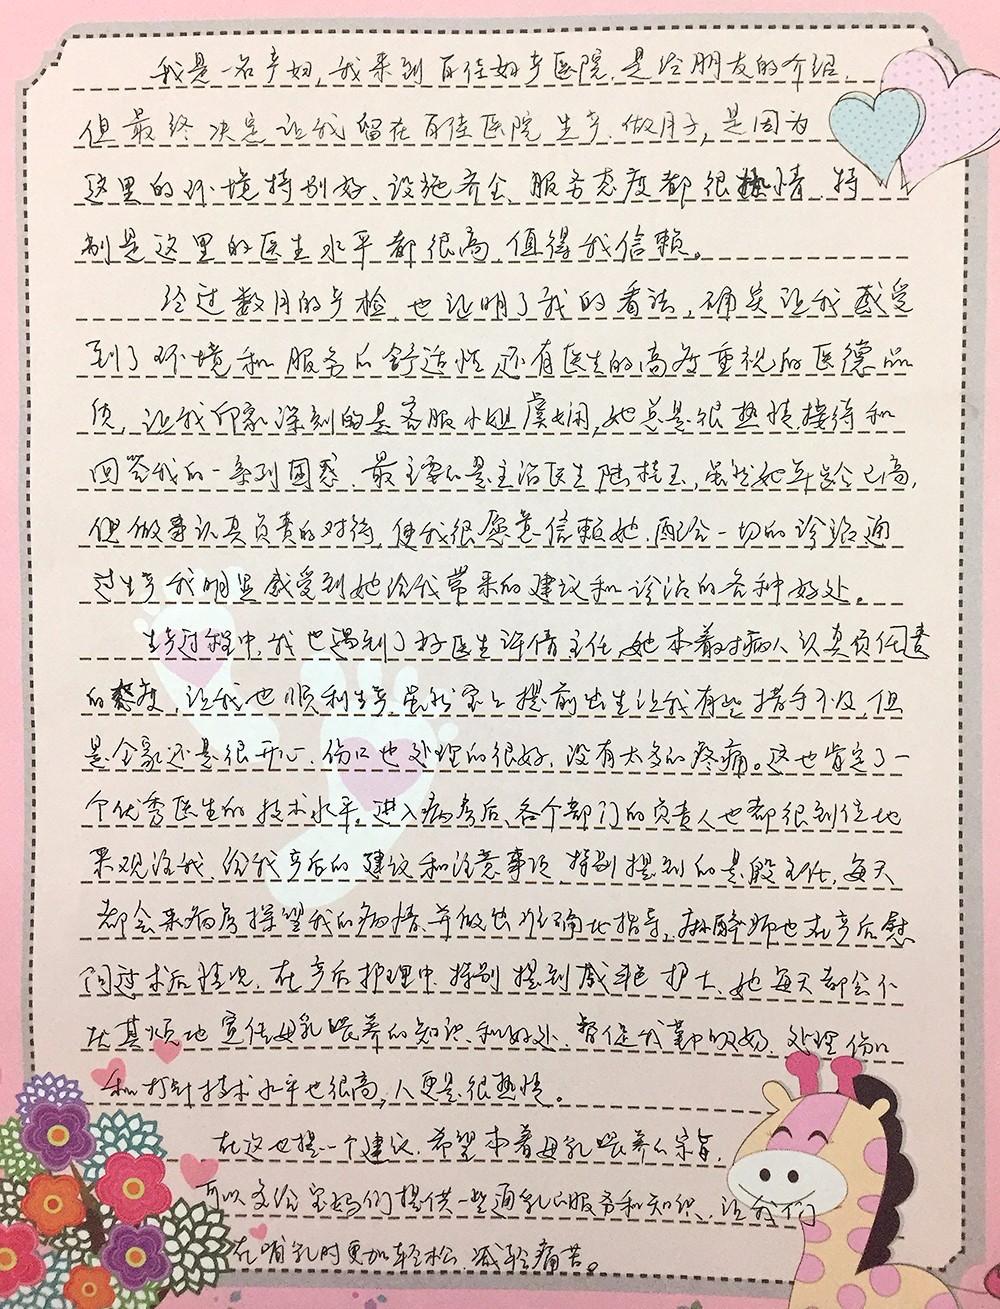 我是一名产妇,我来到百佳妇产医院,是经朋友的介绍,
但最终决定让我留在百佳医院生产、做月子,是因为
这里的环境特别好、设施齐全、服务态度都很热情,特
别是这里的医生水平都很高,值得我信赖。
经过数月的产检,也证明了我的看法,确实让我感受
到了环境和服务的舒适性,还有医生的高度重视的医德品
质,让我印象深刻的是客服小姐虞娴,她总是很热情接待和
回答我的一系列困惑,最主要的是主治医生陆桂玉,虽然她年龄已高,
但做事认真负责的对待,使我很愿意信赖她,配合一切的诊治,通
过生产我明显感受到她给我带来的建议和诊治的各种好处。
生产过程中,我也遇到了好医生许倩主任,她本着对病人认真负任责
的态度,让我也顺利生产,虽然宝宝提前出生让我有些措手不及,但
是全家还是很开心,伤口也处理的很好,没有太多的疼痛。这也肯定了一
个优秀医生的技术水平,进入病房后、各个部门的负责人也都很到位地
来观注我,给我产后的建议和注意事项,特别提到的是殷主任,每天
都会来病房探望我的病情,并做出准确地指导,麻醉师也在产后慰
问过术后情况,在产后护理中,特别提到戚艳护士,她每天都会不
厌其烦地宣传母乳喂养的知识、和好处,督促我勤吸奶,处理伤口
和打针技术水平也很高,人更是很热情。
在这也提一个建议,希望本着母乳喂养的宗旨,
可以多给宝妈们提供一些通乳的服务和知识,让我们
在哺乳时更加轻松,减轻痛苦。